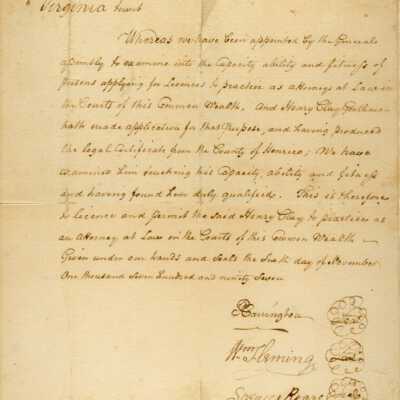 Virginia towit
Whereas we have been appointed by the General
assembly to examine into the Capacity ability and fitness of
persons applying for Licences to practice as attorneys at Law in
the Courts of this Common Wealth, And Henry Clay Gentleman
hath made application for that Purpose, and having produced
the legal Certificate from the County of Henrico; We have
examined him touching his Capacity, ability and fitness
and having found him duly qualified. This is therefore
to Licence and permit the said Henry Clay to practice as
an Attorney at Law in the Courts of this Common Wealth
Given under our hands and Seals the Sixth day of November
One thousand Seven Hundred and ninety Seven
PCarrington
Wm Fleming
Spencer Roane